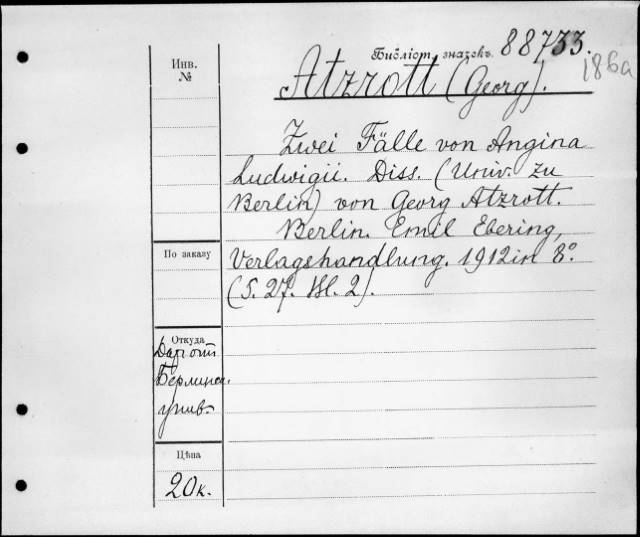 Библіот. значекъ 88733.
186а
Инв.
№
Atzrott (Georg).
Zwei Fälle von Angina
Ludwigii. Diss. (Univ. zu
Berlin) von Georg Atzrott.
Berlin. Emil Ebering,
Verlagshandlung. 1912 in 8°.
(S. 27. Bl. 2).
По заказу
Откуда
Даръ отъ
Берлинск.
унив.
Цѣна
20 к.